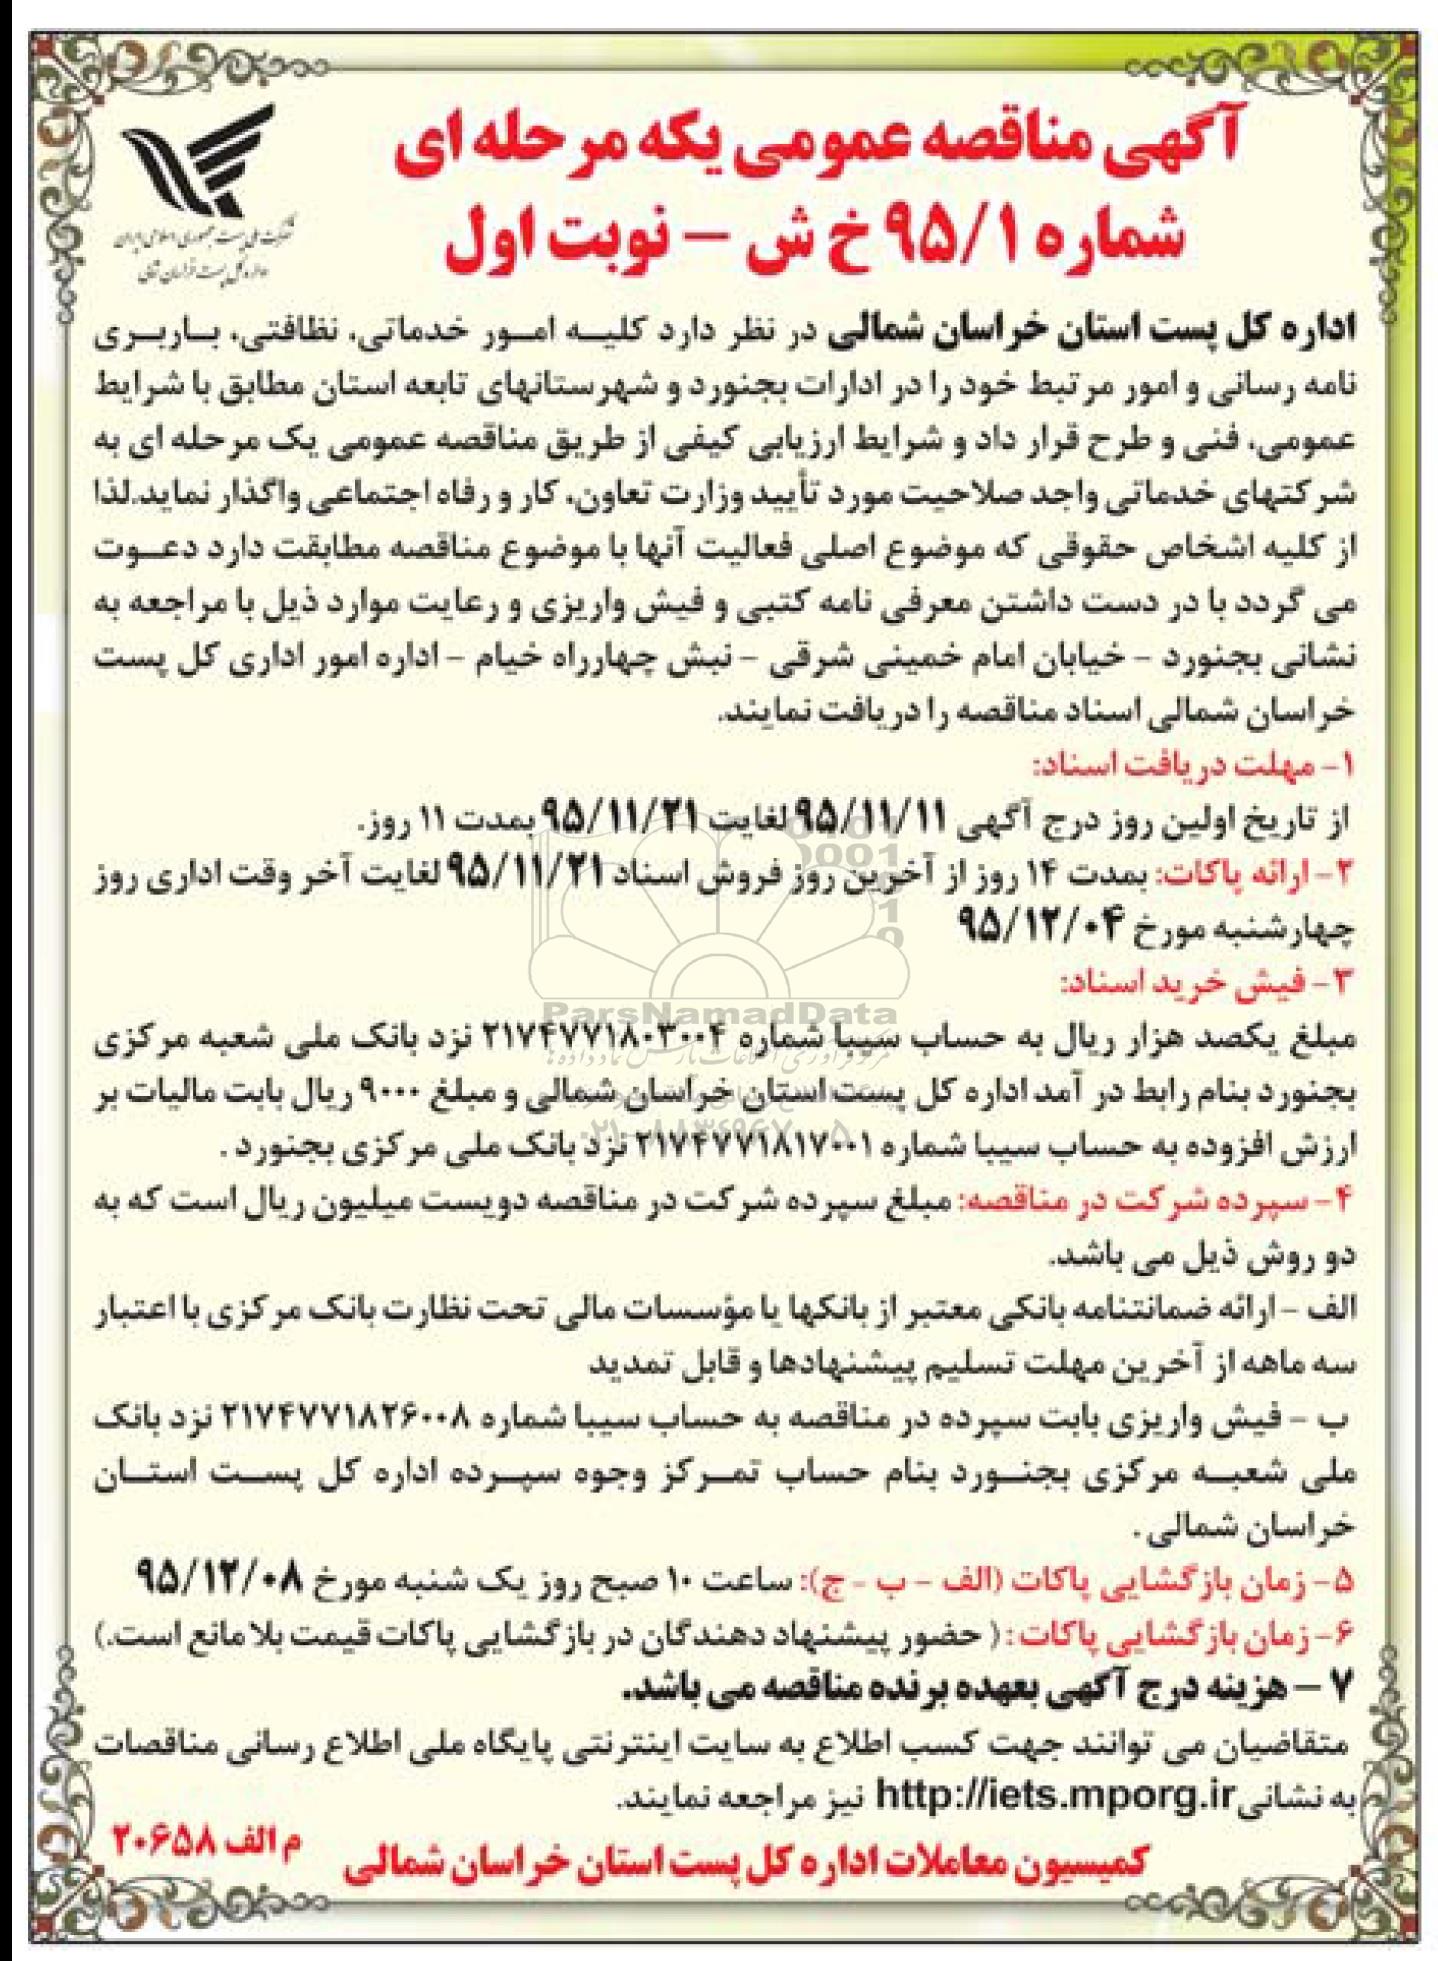 آگهی مناقصه عمومی یکه مرحله ای
شماره ۹۵/۱ خ ش – نوبت اول
شرکت ملی پست جمهوری اسلامی ایران
اداره کل پست خراسان شمالی
اداره کل پست استان خراسان شمالی در نظر دارد کلیه امور خدماتی، نظافتی، باربری
نامه رسانی و امور مرتبط خود را در ادارات بجنورد و شهرستانهای تابعه استان مطابق با شرایط
عمومی، فنی و طرح قرار داد و شرایط ارزیابی کیفی از طریق مناقصه عمومی یک مرحله ای به
شرکتهای خدماتی واجد صلاحیت مورد تأیید وزارت تعاون، کار و رفاه اجتماعی واگذار نماید.لذا
از کلیه اشخاص حقوقی که موضوع اصلی فعالیت آنها با موضوع مناقصه مطابقت دارد دعوت
می گردد با در دست داشتن معرفی نامه کتبی و فیش واریزی و رعایت موارد ذیل با مراجعه به
نشانی بجنورد – خیابان امام خمینی شرقی – نبش چهارراه خیام – اداره امور اداری کل پست
خراسان شمالی اسناد مناقصه را دریافت نمایند.
۱- مهلت دریافت اسناد:
از تاریخ اولین روز درج آگهی ۹۵/۱۱/۱۱ لغایت ۹۵/۱۱/۲۱ بمدت ۱۱ روز.
۲- ارائه پاکات: بمدت ۱۴ روز از آخرین روز فروش اسناد ۹۵/۱۱/۲۱ لغایت آخر وقت اداری روز
چهارشنبه مورخ ۹۵/۱۲/۰۴
۳- فیش خرید اسناد:
ParsNamadData
مبلغ یکصد هزار ریال به حساب سیبا شماره ۲۱۷۴۷۷۱۸۰۳۰۰۴ نزد بانک ملی شعبه مرکزی
بجنورد بنام رابط در آمد اداره کل پست استان خراسان شمالی و مبلغ ۹۰۰۰ ریال بابت مالیات بر
ارزش افزوده به حساب سیبا شماره ۲۱۷۴۷۷۱۸۱۷۰۰۱ نزد بانک ملی مرکزی بجنورد .
۴- سپرده شرکت در مناقصه: مبلغ سپرده شرکت در مناقصه دویست میلیون ریال است که به
دو روش ذیل می باشد.
الف – ارائه ضمانتنامه بانکی معتبر از بانکها یا مؤسسات مالی تحت نظارت بانک مرکزی با اعتبار
سه ماهه از آخرین مهلت تسلیم پیشنهادها و قابل تمدید
ب – فیش واریزی بابت سپرده در مناقصه به حساب سیبا شماره ۲۱۷۴۷۷۱۸۲۶۰۰۸ نزد بانک
ملی شعبه مرکزی بجنورد بنام حساب تمرکز وجوه سپرده اداره کل پست استان
خراسان شمالی .
۵- زمان بازگشایی پاکات (الف – ب – ج): ساعت ۱۰ صبح روز یک شنبه مورخ ۹۵/۱۲/۰۸
۶- زمان بازگشایی پاکات : ( حضور پیشنهاد دهندگان در بازگشایی پاکات قیمت بلا مانع است.)
۷ – هزینه درج آگهی بعهده برنده مناقصه می باشد.
متقاضیان می توانند جهت کسب اطلاع به سایت اینترنتی پایگاه ملی اطلاع رسانی مناقصات
به نشانی http://iets.mporg.ir نیز مراجعه نمایند.
م الف ۲۰۶۵۸
کمیسیون معاملات اداره کل پست استان خراسان شمالی